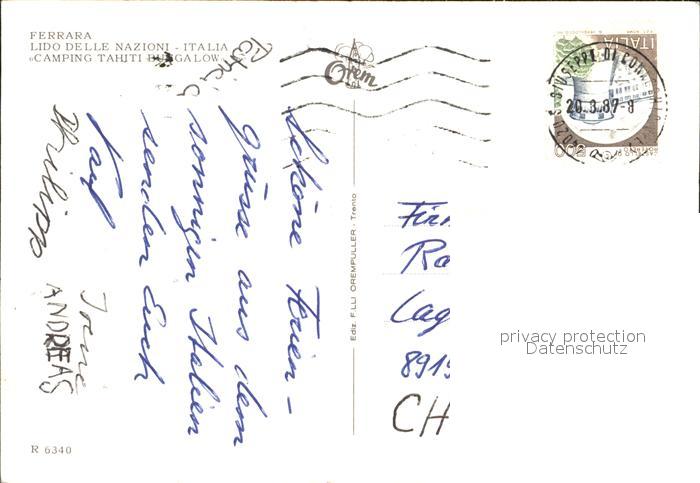 FERRARA
LIDO DELLE NAZIONI - ITALIA
«CAMPING TAHITI BUNGALOW»
Orem
ITALIA
20.8.87-8
Schöne Ferien-
grüsse aus dem
sonnigen Italien
senden Euch
Patricia
Philipp
ANDREAS
Ediz. F.LLI OREMPULLER - Trento
Fir
Ra
Lag
891
CH
privacy protection
Datenschutz
R 6340